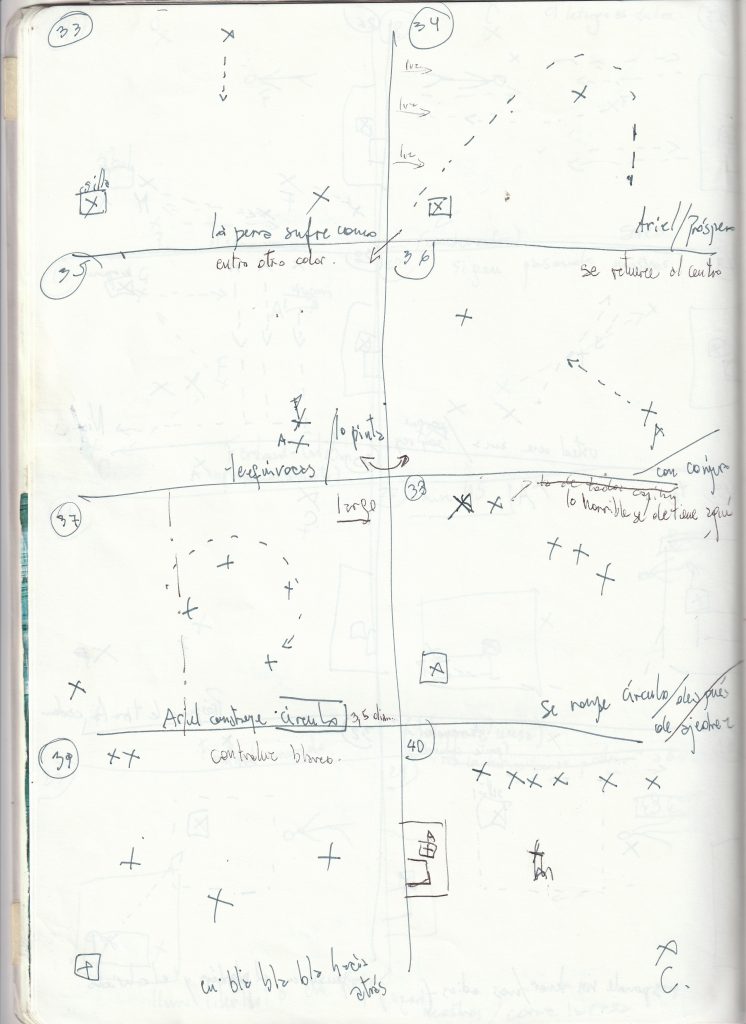 33
silla
la pena sufre como
entra otro color.
34
luz
luz
luz
Ariel/Próspero
35
A
/lo pinta
36
se retuerce al centro
A
con conjuro
37
largo
Ariel construye círculo 3,5 diam.
contraluz blanco.
38
lo horrible se detiene aquí
se rompe círculo/después
de ajedrez
39
en bla bla bla hacia
atrás
40
C.